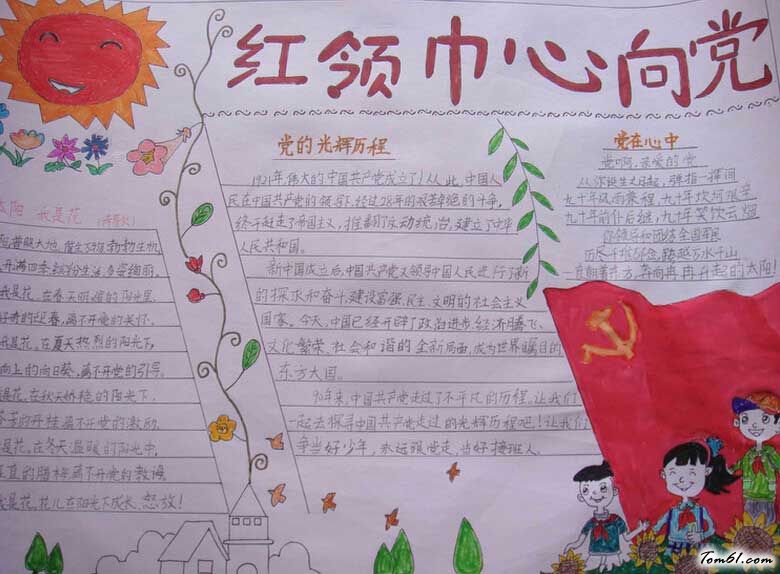 红领巾心向党
党的光辉历程
1921年伟大的中国共产党成立了!从此,中国人
民在中国共产党的领导下,经过28年的艰苦卓绝的斗争,
终于赶走了帝国主义,推翻反动统治,建立了中华
人民共和国。
新中国成立后,中国共产党又领导中国人民进行了新
的探求和奋斗,建设富强、民主、文明的社会主义
国家。今天,中国已经开辟了政治进步、经济腾飞、
文化繁荣、社会和谐的全新局面,成为世界瞩目的
东方大国。
90年来,中国共产党走过了不平凡的历程,让我们
一起去探寻中国共产党走过的光辉历程吧!让我们
争当好少年,永远跟党走,当好接班人。
党在心中
党啊,亲爱的党
从你诞生之日起,弹指一挥间
九十年风雨兼程,九十年坎坷艰辛
九十年前仆后继,九十年笑饮云烟
你领导和团结全国军民
历尽千难
跨越万水千山
一直朝着东方,奔向冉冉升起的太阳!
太阳 我是花
照大地,
开满四季缤纷
多姿绚丽。
我是花,在春天明媚的阳光里,
迎春,离不开党的关怀。
我是花,在夏天热烈的阳光下,
向上的向日葵,离不开党的引导。
是花,在秋天娇艳的阳光下,
的丹桂离不开党的激励。
是花,在冬天温暖的阳光中,
的腊梅离不开党的教诲。
我是花,花儿在阳光下成长、怒放!
Tom61.com